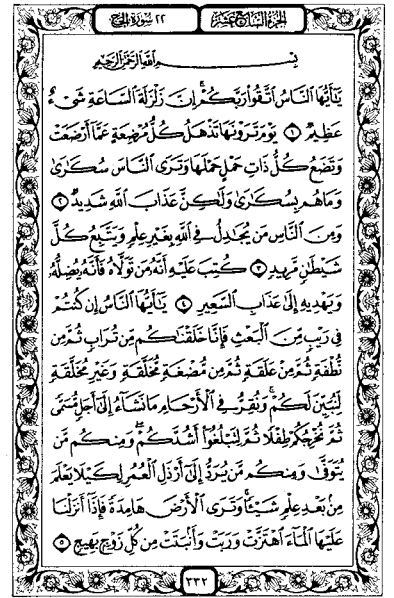 الجزء السابع عشر
٢٢ سورة الحج
بِسْمِ اللَّهِ الرَّحْمَنِ الرَّحِيمِ
يَٰٓأَيُّهَا النَّاسُ اتَّقُوا رَبَّكُمْ ۚ إِنَّ زَلْزَلَةَ السَّاعَةِ شَىْءٌ
عَظِيمٌ ١ يَوْمَ تَرَوْنَهَا تَذْهَلُ كُلُّ مُرْضِعَةٍ عَمَّآ أَرْضَعَتْ
وَتَضَعُ كُلُّ ذَاتِ حَمْلٍ حَمْلَهَا وَتَرَى النَّاسَ سُكَٰرَىٰ
وَمَا هُم بِسُكَٰرَىٰ وَلَٰكِنَّ عَذَابَ اللَّهِ شَدِيدٌ ٢
وَمِنَ النَّاسِ مَن يُجَٰدِلُ فِى اللَّهِ بِغَيْرِ عِلْمٍ وَيَتَّبِعُ كُلَّ
شَيْطَٰنٍ مَّرِيدٍ ٣ كُتِبَ عَلَيْهِ أَنَّهُۥ مَن تَوَلَّاهُ فَأَنَّهُۥ يُضِلُّهُۥ
وَيَهْدِيهِ إِلَىٰ عَذَابِ السَّعِيرِ ٤ يَٰٓأَيُّهَا النَّاسُ إِن كُنتُمْ
فِى رَيْبٍ مِّنَ الْبَعْثِ فَإِنَّا خَلَقْنَٰكُم مِّن تُرَابٍ ثُمَّ مِن
نُّطْفَةٍ ثُمَّ مِنْ عَلَقَةٍ ثُمَّ مِن مُّضْغَةٍ مُّخَلَّقَةٍ وَغَيْرِ مُخَلَّقَةٍ
لِّنُبَيِّنَ لَكُمْ ۚ وَنُقِرُّ فِى الْأَرْحَامِ مَا نَشَآءُ إِلَىٰٓ أَجَلٍ مُّسَمًّى
ثُمَّ نُخْرِجُكُمْ طِفْلًا ثُمَّ لِتَبْلُغُوٓا أَشُدَّكُمْ ۖ وَمِنكُم مَّن
يُتَوَفَّىٰ وَمِنكُم مَّن يُرَدُّ إِلَىٰٓ أَرْذَلِ الْعُمُرِ لِكَيْلَا يَعْلَمَ
مِنۢ بَعْدِ عِلْمٍ شَيْـًٔا ۚ وَتَرَى الْأَرْضَ هَامِدَةً فَإِذَآ أَنزَلْنَا
عَلَيْهَا الْمَآءَ اهْتَزَّتْ وَرَبَتْ وَأَنۢبَتَتْ مِن كُلِّ زَوْجٍۭ بَهِيجٍ ٥
٣٣٢